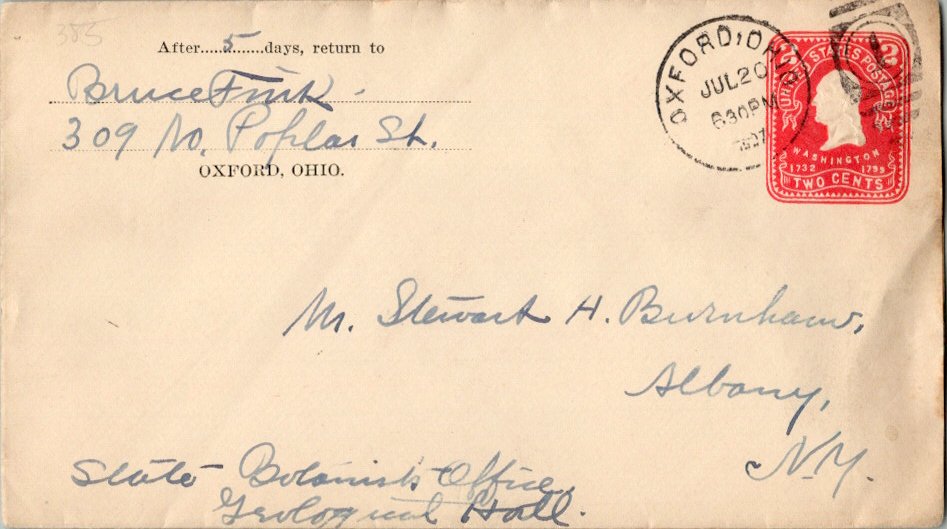 385
After.....5......days, return to
Bruce Fink
309 No. Poplar St.
OXFORD, OHIO.
OXFORD, OHIO
JUL 20
630 PM
1907
UNITED STATES POSTAGE
2 2
WASHINGTON
1732 1799
TWO CENTS
Mr. Stewart H. Burnham,
Albany,
N.Y.
State Botanists Office,
Geological Hall.